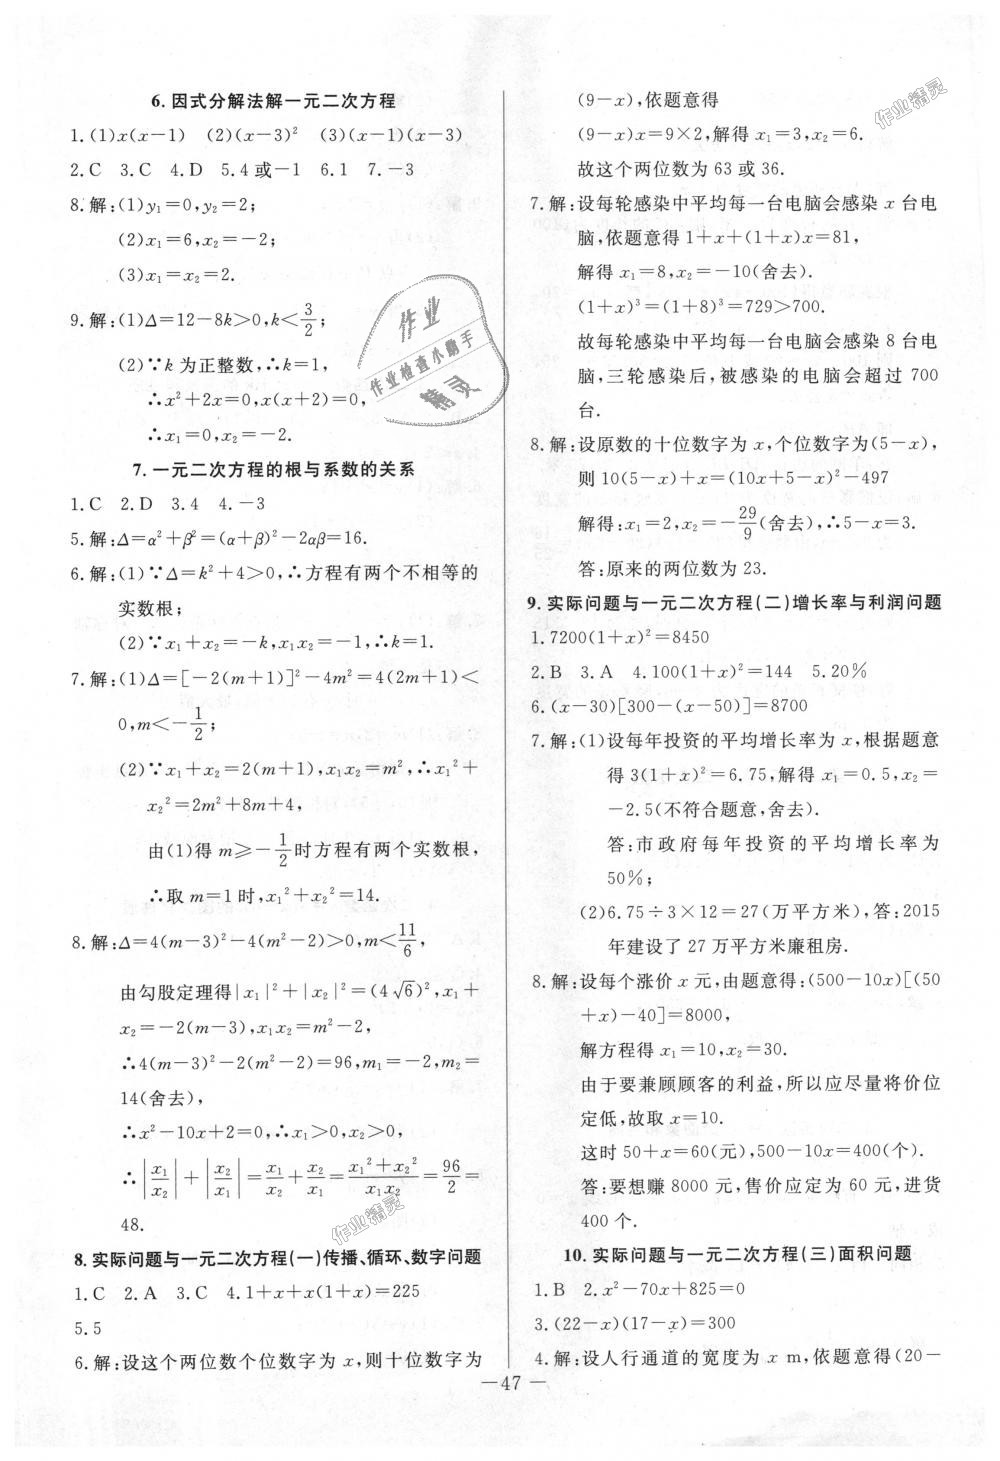 6. 因式分解法解一元二次方程
1. (1)x(x−1) (2)(x−3)² (3)(x−1)(x−3)
2. C 3. C 4. D 5. 4或−1 6. 1 7. −3
8. 解:(1)y₁=0,y₂=2;
(2)x₁=6,x₂=−2;
(3)x₁=x₂=2.
9. 解:(1)Δ=12−8k>0,k<3/2;
(2)∵k为正整数,∴k=1,
∴x²+2x=0,x(x+2)=0,
∴x₁=0,x₂=−2.
7. 一元二次方程的根与系数的关系
1. C 2. D 3. 4 4. −3
5. 解:Δ=α²+β²=(α+β)²−2αβ=16.
6. 解:(1)∵Δ=k²+4>0,∴方程有两个不相等的
实数根;
(2)∵x₁+x₂=−k,x₁x₂=−1,∴k=1.
7. 解:(1)Δ=[−2(m+1)]²−4m²=4(2m+1)<
0,m<−1/2;
(2)∵x₁+x₂=2(m+1),x₁x₂=m²,∴x₁²+
x₂²=2m²+8m+4,
由(1)得m≥−1/2时方程有两个实数根,
∴取m=1时,x₁²+x₂²=14.
8. 解:Δ=4(m−3)²−4(m²−2)>0,m<11/6,
由勾股定理得|x₁|²+|x₂|²=(4√6)²,x₁+
x₂=−2(m−3),x₁x₂=m²−2,
∴4(m−3)²−2(m²−2)=96,m₁=−2,m₂=
14(舍去),
∴x²−10x+2=0,∴x₁>0,x₂>0,
∴|x₁/x₂|+|x₂/x₁|=x₁/x₂+x₂/x₁=(x₁²+x₂²)/(x₁x₂)=96/2=
48.
8. 实际问题与一元二次方程(一)传播、循环、数字问题
1. C 2. A 3. C 4. 1+x+x(1+x)=225
5. 5
6. 解:设这个两位数个位数字为x,则十位数字为
(9−x),依题意得
(9−x)x=9×2,解得x₁=3,x₂=6.
故这个两位数为63或36.
7. 解:设每轮感染中平均每一台电脑会感染x台电
脑,依题意得1+x+(1+x)x=81,
解得x₁=8,x₂=−10(舍去).
(1+x)³=(1+8)³=729>700.
故每轮感染中平均每一台电脑会感染8台电
脑,三轮感染后,被感染的电脑会超过700
台.
8. 解:设原数的十位数字为x,个位数字为(5−x),
则10(5−x)+x=(10x+5−x)²−497
解得:x₁=2,x₂=−29/9(舍去),∴5−x=3.
答:原来的两位数为23.
9. 实际问题与一元二次方程(二)增长率与利润问题
1. 7200(1+x)²=8450
2. B 3. A 4. 100(1+x)²=144 5. 20%
6. (x−30)[300−(x−50)]=8700
7. 解:(1)设每年投资的平均增长率为x,根据题意
得3(1+x)²=6.75,解得x₁=0.5,x₂=
−2.5(不符合题意,舍去).
答:市政府每年投资的平均增长率为
50%;
(2)6.75÷3×12=27(万平方米),答:2015
年建设了27万平方米廉租房.
8. 解:设每个涨价x元,由题意得:(500−10x)[(50
+x)−40]=8000,
解方程得x₁=10,x₂=30.
由于要兼顾顾客的利益,所以应尽量将价位
定低,故取x=10.
这时50+x=60(元),500−10x=400(个).
答:要想赚8000元,售价应定为60元,进货
400个.
10. 实际问题与一元二次方程(三)面积问题
1. B 2. x²−70x+825=0
3. (22−x)(17−x)=300
4. 解:设人行通道的宽度为x m,依题意得(20−
—47—
作业
作业检查小助手
精灵
作业精灵
作业精灵